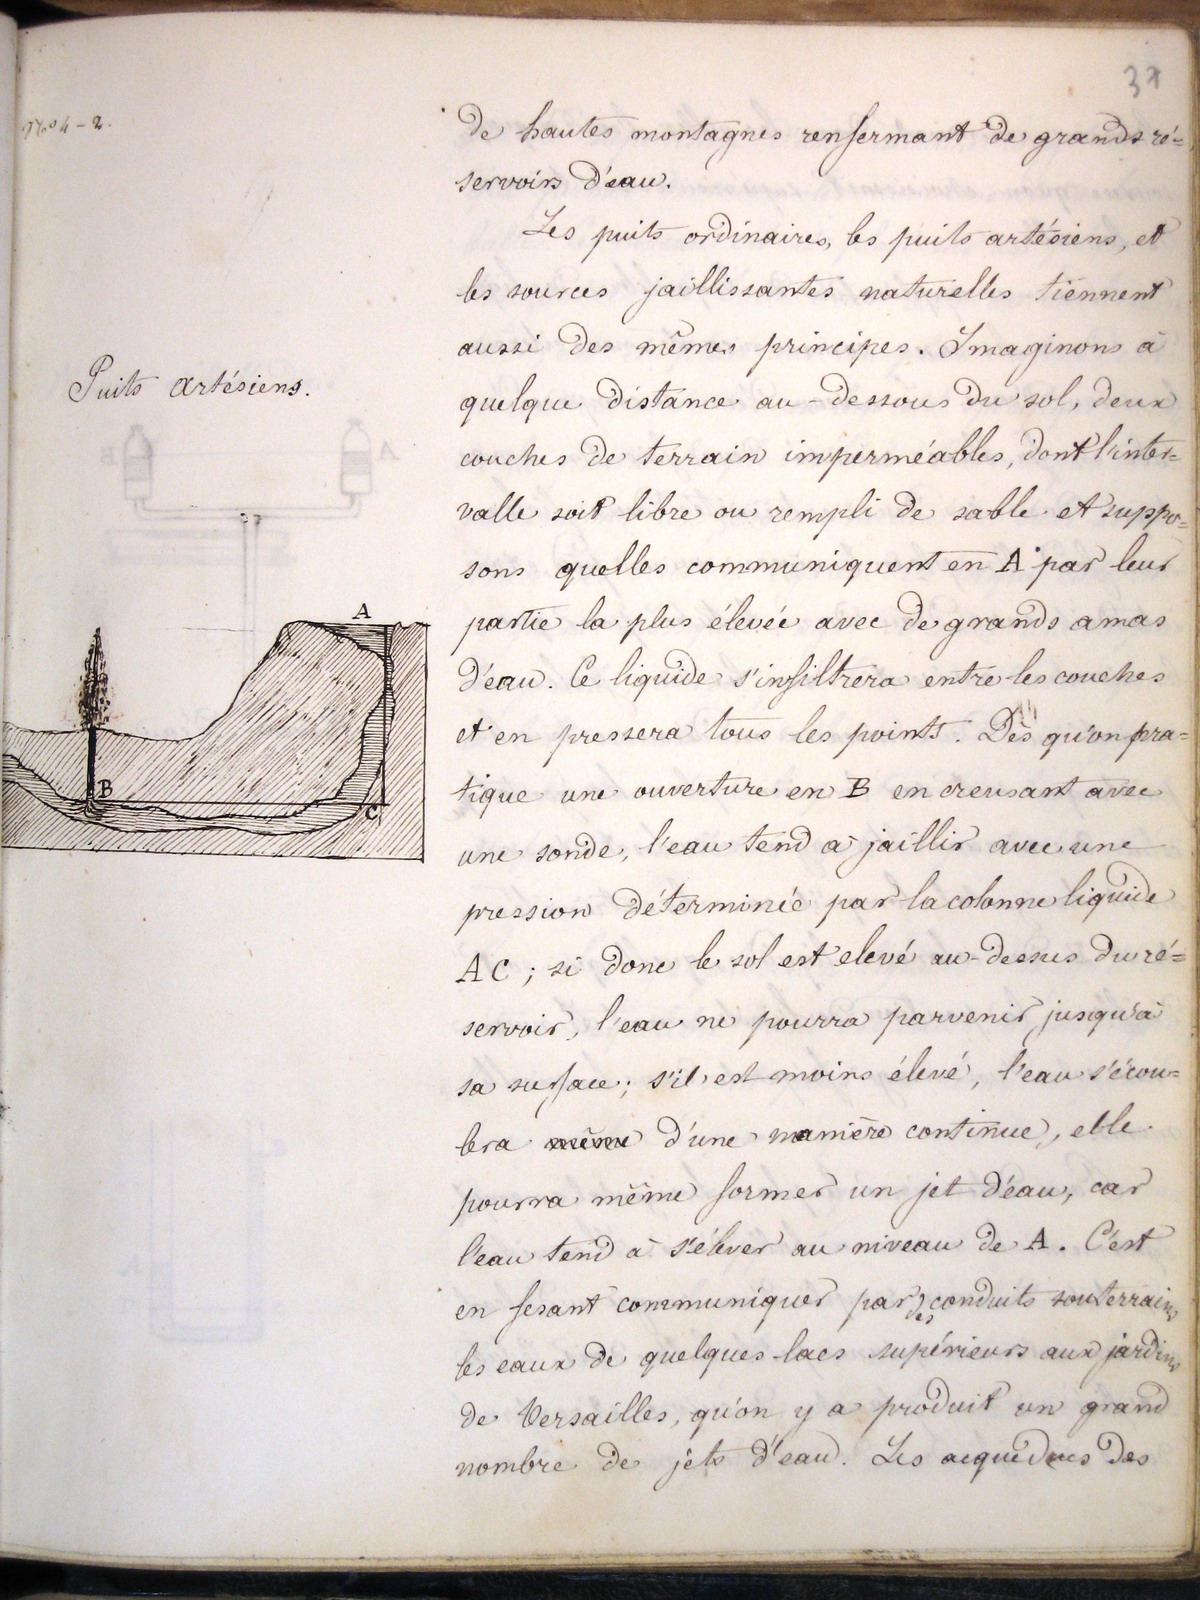 37
de hautes montagnes renfermant de grands ré=
servoirs d'eau.
Les puits ordinaires, les puits artésiens, et
les sources jaillissantes naturelles tiennent
aussi des mêmes principes. Imaginons à
Puits artésiens.
quelque distance au-dessous du sol, deux
couches de terrain imperméables, dont l'inter=
valle soit libre ou rempli de sable et suppo=
sons quelles communiquent en A par leur
partie la plus élevée avec de grands amas
d'eau. Ce liquide s'infiltrera entre les couches
et en pressera tous les points. Dès qu'on pra=
tique une ouverture en B en creusant avec
une sonde, l'eau tend à jaillir avec une
pression déterminée par la colonne liquide
AC ; si donc le sol est elevé au-dessus du ré=
servoir, l'eau ne pourra parvenir jusqu'à
sa surface ; s'il est moins élevé, l'eau s'écou=
lera même d'une manière continue, elle
pourra même former un jet d'eau, car
l'eau tend à s'élever au niveau de A. C'est
en fesant communiquer par des conduits souterrains
les eaux de quelques lacs supérieurs aux jardins
de Versailles, qu'on y a produit un grand
nombre de jets d'eau. Les acqueducs des
A
B
C